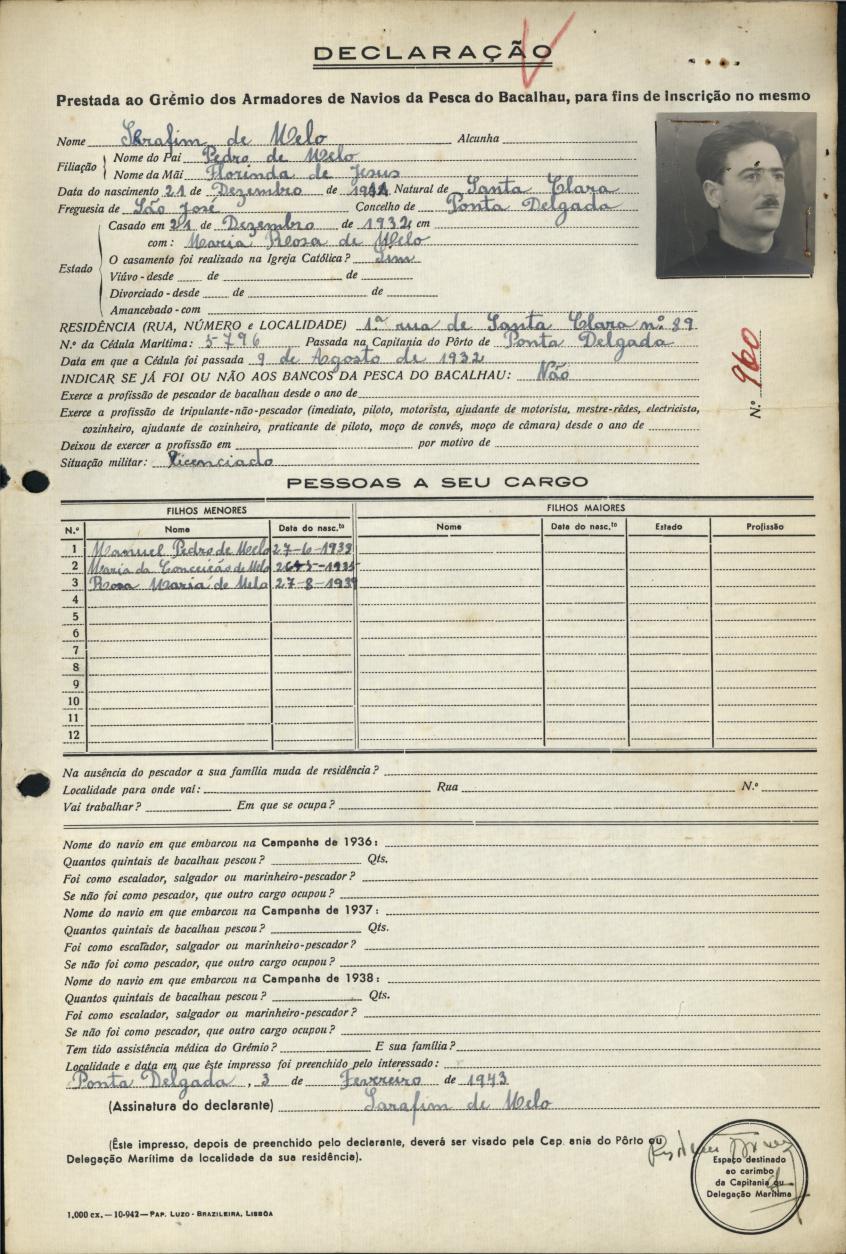 DECLARAÇÃO
Prestada ao Grémio dos Armadores de Navios da Pesca do Bacalhau, para fins de inscrição no mesmo
Nome Serafim de Melo Alcunha
Filiação Nome do Pai Pedro de Melo
Nome da Mãi Florinda de Jesus
Data do nascimento 21 de Dezembro de 1911 Natural de Santa Clara
Freguesia de São José Concelho de Ponta Delgada
Estado Casado em 21 de Dezembro de 1932 em
com: Maria Rosa de Melo
O casamento foi realizado na Igreja Católica? Sim
Viúvo-desde de de
Divorciado-desde de de
Amancebado-com
RESIDÊNCIA (RUA, NÚMERO e LOCALIDADE) 1.ª rua de Santa Clara n.º 89
N.º da Cédula Marítima: 5796 Passada na Capitania do Pôrto de Ponta Delgada
Data em que a Cédula foi passada 9 de Agosto de 1932
INDICAR SE JÁ FOI OU NÃO AOS BANCOS DA PESCA DO BACALHAU: Não
Exerce a profissão de pescador de bacalhau desde o ano de
Exerce a profissão de tripulante-não-pescador (imediato, piloto, motorista, ajudante de motorista, mestre-rêdes, electricista,
cozinheiro, ajudante de cozinheiro, praticante de piloto, moço de convés, moço de câmara) desde o ano de
Deixou de exercer a profissão em por motivo de
Situação militar: Licenciado
N.º 960
PESSOAS A SEU CARGO
FILHOS MENORES FILHOS MAIORES
N.º Nome Data do nasc.to Nome Data do nasc.to Estado Profissão
1 Manuel Pedro de Melo 27-6-1932
2 Maria da Conceição de Melo
3 Rosa Maria de Melo 27-8-1939
4
5
6
7
8
9
10
11
12
Na ausência do pescador a sua família muda de residência?
Localidade para onde vai: Rua N.º
Vai trabalhar? Em que se ocupa?
Nome do navio em que embarcou na Campanha de 1936:
Quantos quintais de bacalhau pescou? Qts.
Foi como escalador, salgador ou marinheiro-pescador?
Se não foi como pescador, que outro cargo ocupou?
Nome do navio em que embarcou na Campanha de 1937:
Quantos quintais de bacalhau pescou? Qts.
Foi como escalador, salgador ou marinheiro-pescador?
Se não foi como pescador, que outro cargo ocupou?
Nome do navio em que embarcou na Campanha de 1938:
Quantos quintais de bacalhau pescou? Qts.
Foi como escalador, salgador ou marinheiro-pescador?
Se não foi como pescador, que outro cargo ocupou?
Tem tido assistência médica do Grémio? E sua família?
Localidade e data em que êste impresso foi preenchido pelo interessado:
Ponta Delgada, 3 de Fevereiro de 1943
(Assinatura do declarante) Sarafim de Melo
(Êste impresso, depois de preenchido pelo declarante, deverá ser visado pela Cap ania do Pôrto ou
Delegação Marítima da localidade da sua residência).
Espaço destinado
ao carimbo
da Capitania ou
Delegação Marítima
1.000 ex. — 10-942 — PAP. LUZO-BRAZILEIRA, LISBÔA